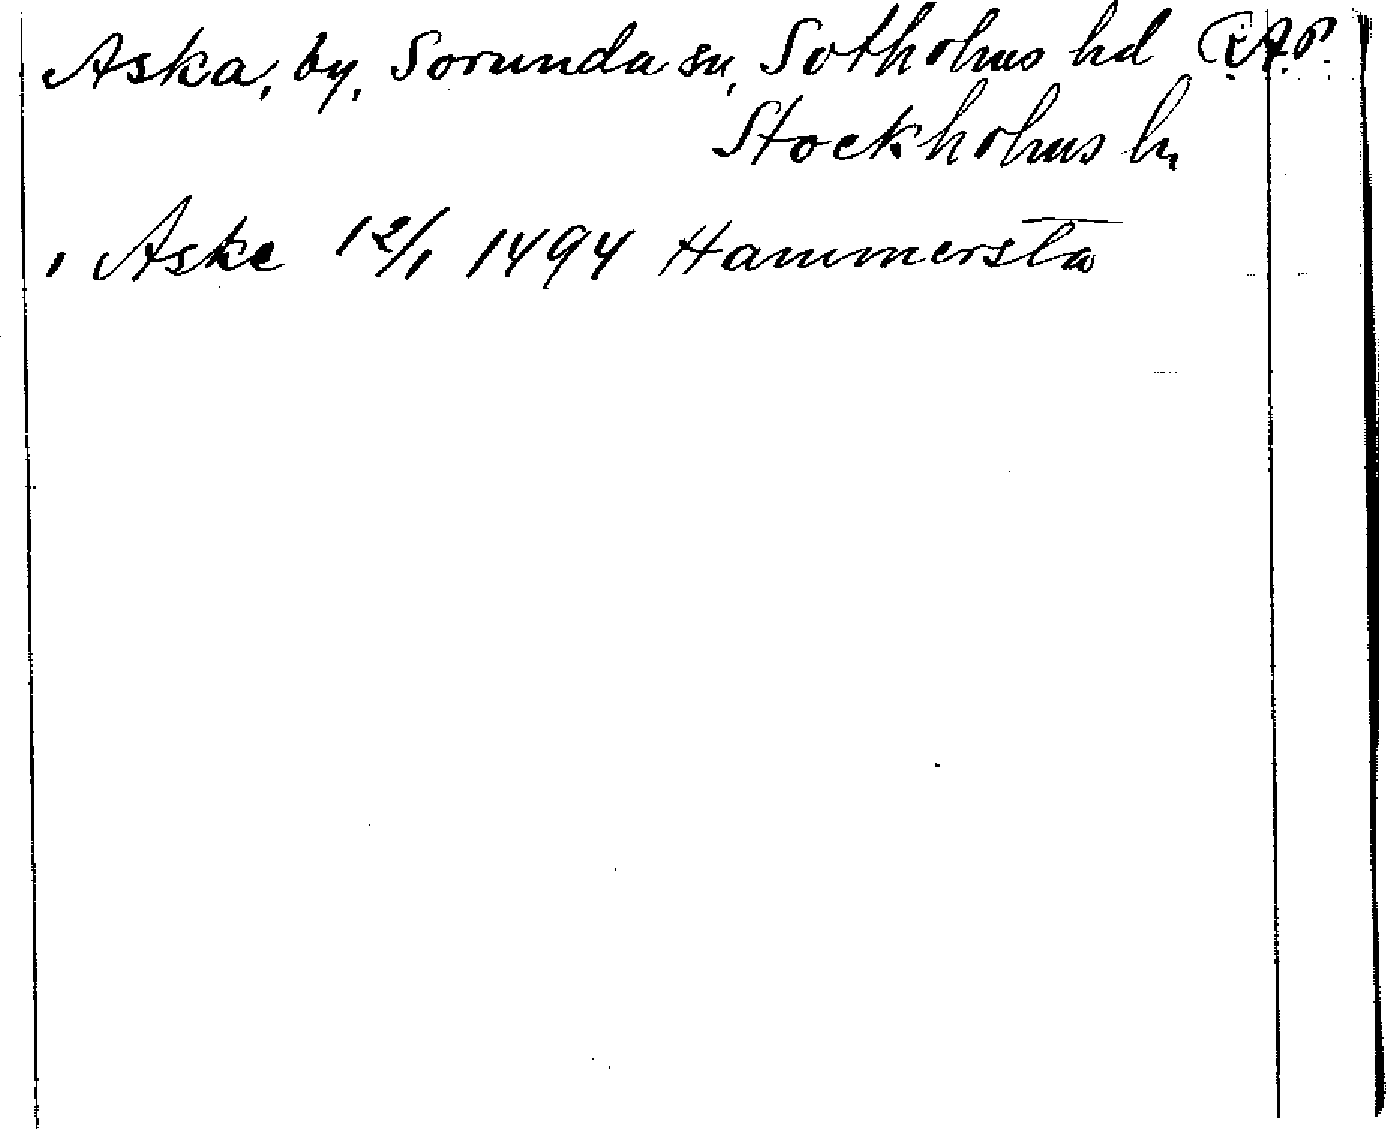 Aska, by, Sorunda sn, Sotholms hd RAP.
Stockholms l.
i Aske 12/1 1494 Hammersta